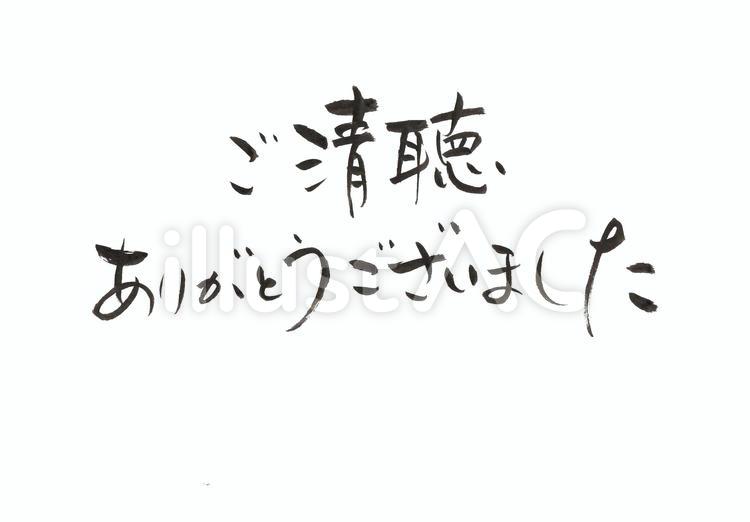 ご清聴
ありがとうございました
illustAC